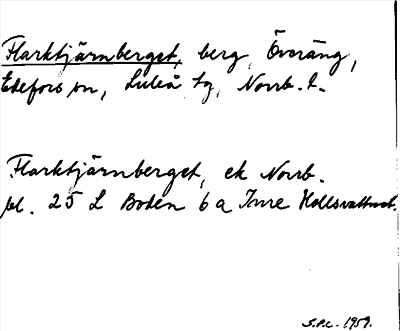 Flarktjärnberget, berg, Överäng,
Edefors sn, Luleå tg, Norrb. l.
Flarktjärnberget, ek Norrb.
bl. 25 L Boden 6 a Inre Hällsvattnet.
S.P.L. 1959.